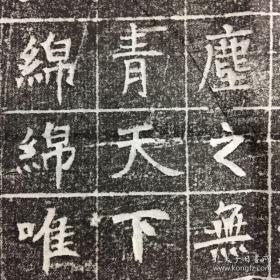 塵之無
青天下
綿綿唯